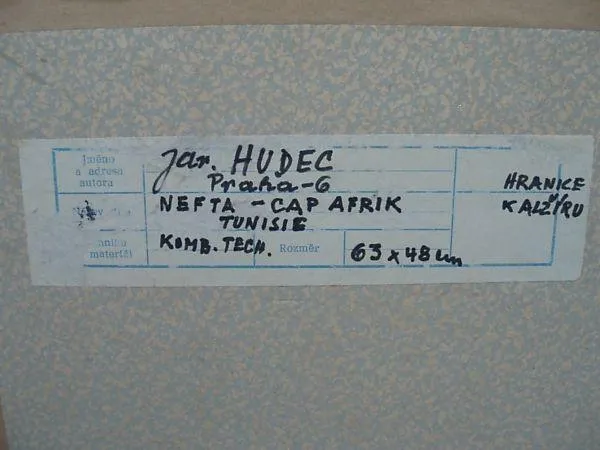 Jméno
a adresa
autora
Jar. HUDEC
Praha-6
NEFTA - CAP AFRIK
TUNISIE
materiál
KOMB. TECH.
Rozměr
63 x 48 cm
HRANICE
KALŽÍRU